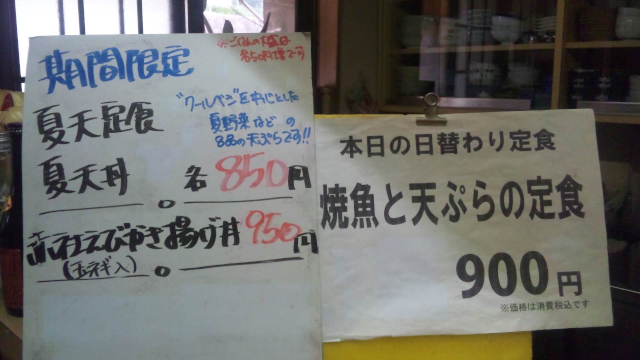 期間限定
※ごはんの大盛は
各50円増です
夏天定食
夏天丼
"クールベジ"をメインとした
夏野菜などの
8品の天ぷらです!!
各850円
赤社えびかき揚げ丼 950円
(玉ネギ入)
本日の日替わり定食
焼魚と天ぷらの定食
900円
※価格は消費税込です